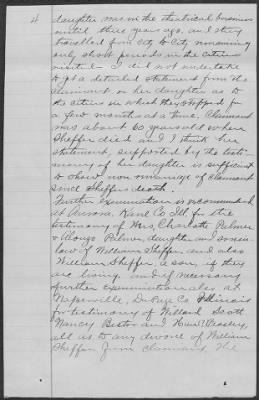 4
daughter was in the theatrical business
until three years ago, and they
travelled from city to city remaining
only short periods in the cities
visited. I did not undertake
to get a detailed statement from the
claimant or her daughter as to
the cities in which they stopped for
a few months at a time. Claimant
was about 60 years old when
Sheffer died and I think her
statement supported by the testi-
mony of her daughter is sufficient
to show non remarriage of claimant
since Sheffers death.
Further examination is recommended
at Aurora, Kane Co Ill for the
testimony of Mrs, Charlotte Palmer
& Alonzo Palmer, daughter and son in
law of William Sheffer, and also
William Sheffer, a son, if they
are living, and if necessary
further examination also at
Naperville, DuPage Co Illinois
for testimony of Willard Scott
Nancy Bestor and
all as to any divorce of William
Sheffer from claimant. The